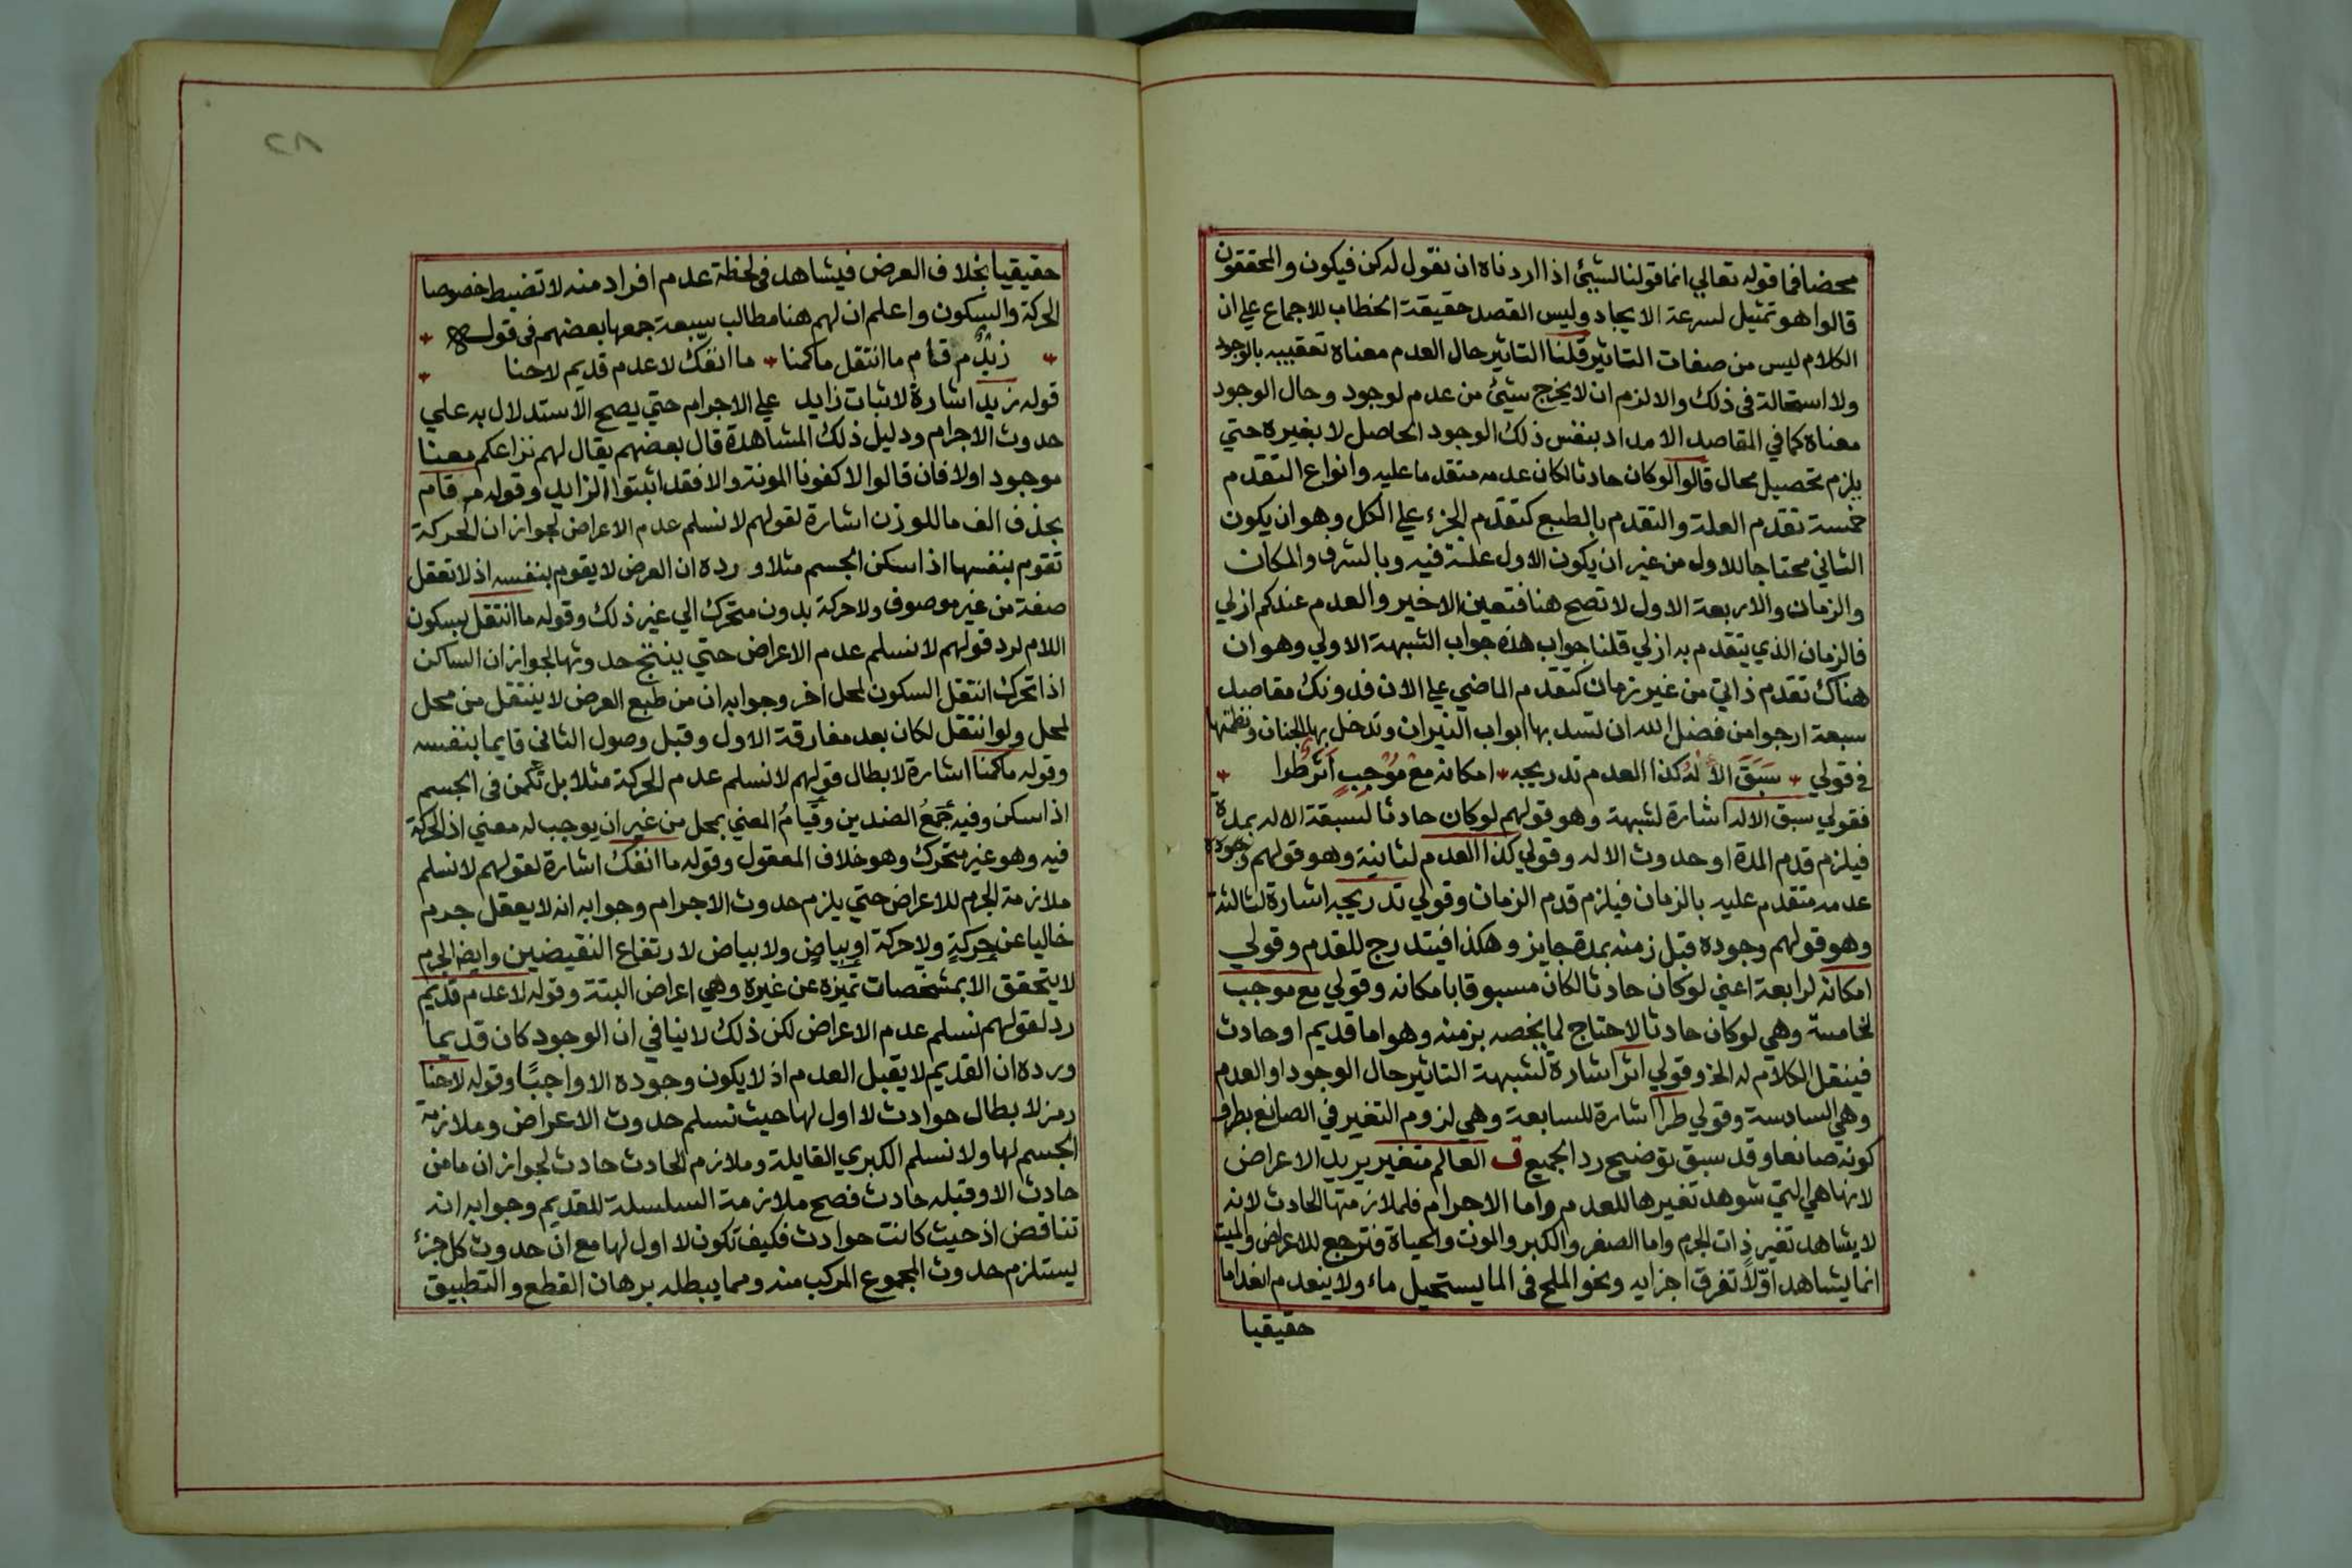 محضا فما قوله تعالي انما قولنا لشيئ اذا اردناه ان نقول له كن فيكون والمحققون
قالوا هو تمثيل لسرعة الايجاد وليس القصد حقيقة الخطاب للاجماع علي ان
الكلام ليس من صفات التاثير قلنا التاثير حال العدم معناه تعقيبه بالوجود
ولا استحالة في ذلك والا لزم ان لا يخرج شيئ من عدم لوجود وحال الوجود
معناه كما في المقاصد الامداد بنفس ذلك الوجود الحاصل لا بغيره حتي
يلزم تحصيل محال قالوا لو كان حادثا لكان عدمه متقدما عليه وانواع التقدم
خمسة تقدم العلة والتقدم بالطبع كتقدم الجزء علي الكل وهو ان يكون
الثاني محتاجا للاول من غير ان يكون الاول علة فيه وبالشرف والمكان
والزمان والاربعة الاول لا تصح هنا فتعين الاخير والعدم عندكم ازلي
فالزمان الذي يتقدم به ازلي قلنا جواب هذه جواب الشبهة الاولي وهو ان
هناك تقدم ذاتي من غير زمان كتقدم الماضي علي الان فدونك مقاصد
سبعة ارجوا من فضل الله ان تسد بها ابواب النيران وتدخل بها الجنان ونظمتها
في قولي سَبَقَ الالهُ كذا العدم تدريجه امكانه مع مُوْجِبٍ اثر طرا
فقولي سبق الاله اشارة لشبهة وهو قولهم لو كان حادثا لسبقه الاله بمدة
فيلزم قدم المدة او حدوث الاله وقولي كذا العدم لثانية وهو قولهم وجوده
عدمه متقدم عليه بالزمان فيلزم قدم الزمان وقولي تدريجه اشارة لثالثة
وهو قولهم وجوده قبل زمنه بمدة جايز وهكذا فيتدرج للقدم وقولي
امكانه لرابعة اعني لو كان حادثا لكان مسبوقا بامكانه وقولي مع موجب
لخامسة وهي لو كان حادثا لاحتاج لما يخصه بزمنه وهو اما قديم او حادث
فينقل الكلام له الخ وقولي اثر اشارة لشبهة التاثير حال الوجود او العدم
وهي السادسة وقولي طرا اشارة للسابعة وهي لزوم التغير في الصانع بطرف
كونه صانعا وقد سبق توضيح رد الجميع ق العالم متغير يريد الاعراض
لانها هي التي شوهد تغيرها للعدم واما الاجرام فلملازمتها الحادث لانه
لا يشاهد تغير ذات الجرم واما الصغر والكبر والموت والحياة فترجع للاعراض والميت
انما يشاهد اوّلًا تفرق اجزايه ونحو الملح في الما يستحيل ماء ولا ينعدم انعداما
حقيقيا
٢٨
حقيقيا بخلاف العرض فيشاهد في لحظة عدم افراد منه لا تضبط خصوصا
الحركة والسكون واعلم ان لهم هنا مطالب سبعة جمعها بعضهم في قوله
زيدٌ م قام ما انتقل ما كمنا ما انفك لا عدم قديم لا حنا
قوله زيد اشارة لاثبات زايد علي الاجرام حتي يصح الاستدلال به علي
حدوث الاجرام ودليل ذلك المشاهدة قال بعضهم يقال لهم نزاعكم معنا
موجود اولا فان قالوا لا كفونا المونة والا فقد اثبتوا الزايد وقوله م قام
بحذف الف ما للوزن اشارة لقولهم لا نسلم عدم الاعراض لجواز ان الحركة
تقوم بنفسها اذا سكن الجسم مثلا ورده ان العرض لا يقوم بنفسه اذ لا تعقل
صفة من غير موصوف ولا حركة بدون متحرك الي غير ذلك وقوله ما انتقل بسكون
اللام لرد قولهم لا نسلم عدم الاعراض حتي ينتج حدوثها لجواز ان الساكن
اذا تحرك انتقل السكون لمحل اخر وجوابه ان من طبع العرض لا ينتقل من محل
لمحل ولو انتقل لكان بعد مفارقة الاول وقبل وصول الثاني قايما بنفسه
وقوله ما كمنا اشارة لابطال قولهم لا نسلم عدم الحركة مثلا بل تكمن في الجسم
اذا سكن وفيه جَمعُ الضدين وقيامُ المعني بمحل من غير ان يوجب له معني اذ الحركة
فيه وهو غير متحرك وهو خلاف المعقول وقوله ما انفك اشارة لقولهم لا نسلم
ملازمة الجرم للاعراض حتي يلزم حدوث الاجرام وجوابه انه لا يعقل جرم
خاليا عن حركةٍ ولا حركة او بياضٍ ولا بياض لارتفاع النقيضين وايضا الجرم
لا يتحقق الا بمشخصات تميزه عن غيره وهي اعراض البتة وقوله لا عدم قديم
رد لقولهم نسلم عدم الاعراض لكن ذلك لا ينافي ان الوجود كان قديما
ورده ان القديم لا يقبل العدم اذ لا يكون وجوده الا واجبًا وقوله لا حنا
رمز لابطال حوادث لا اول لها حيث نسلم حدوث الاعراض وملازمة
الجسم لها ولا نسلم الكبري القايلة وملازم الحادث حادث لجواز ان ما من
حادث الا وقبله حادث فصح ملازمة السلسلة للقديم وجوابه انه
تناقض اذ حيث كانت حوادث فكيف تكون لا اول لها مع ان حدوث كل جزئ
يستلزم حدوث المجموع المركب منه ومما يبطله برهان القطع والتطبيق